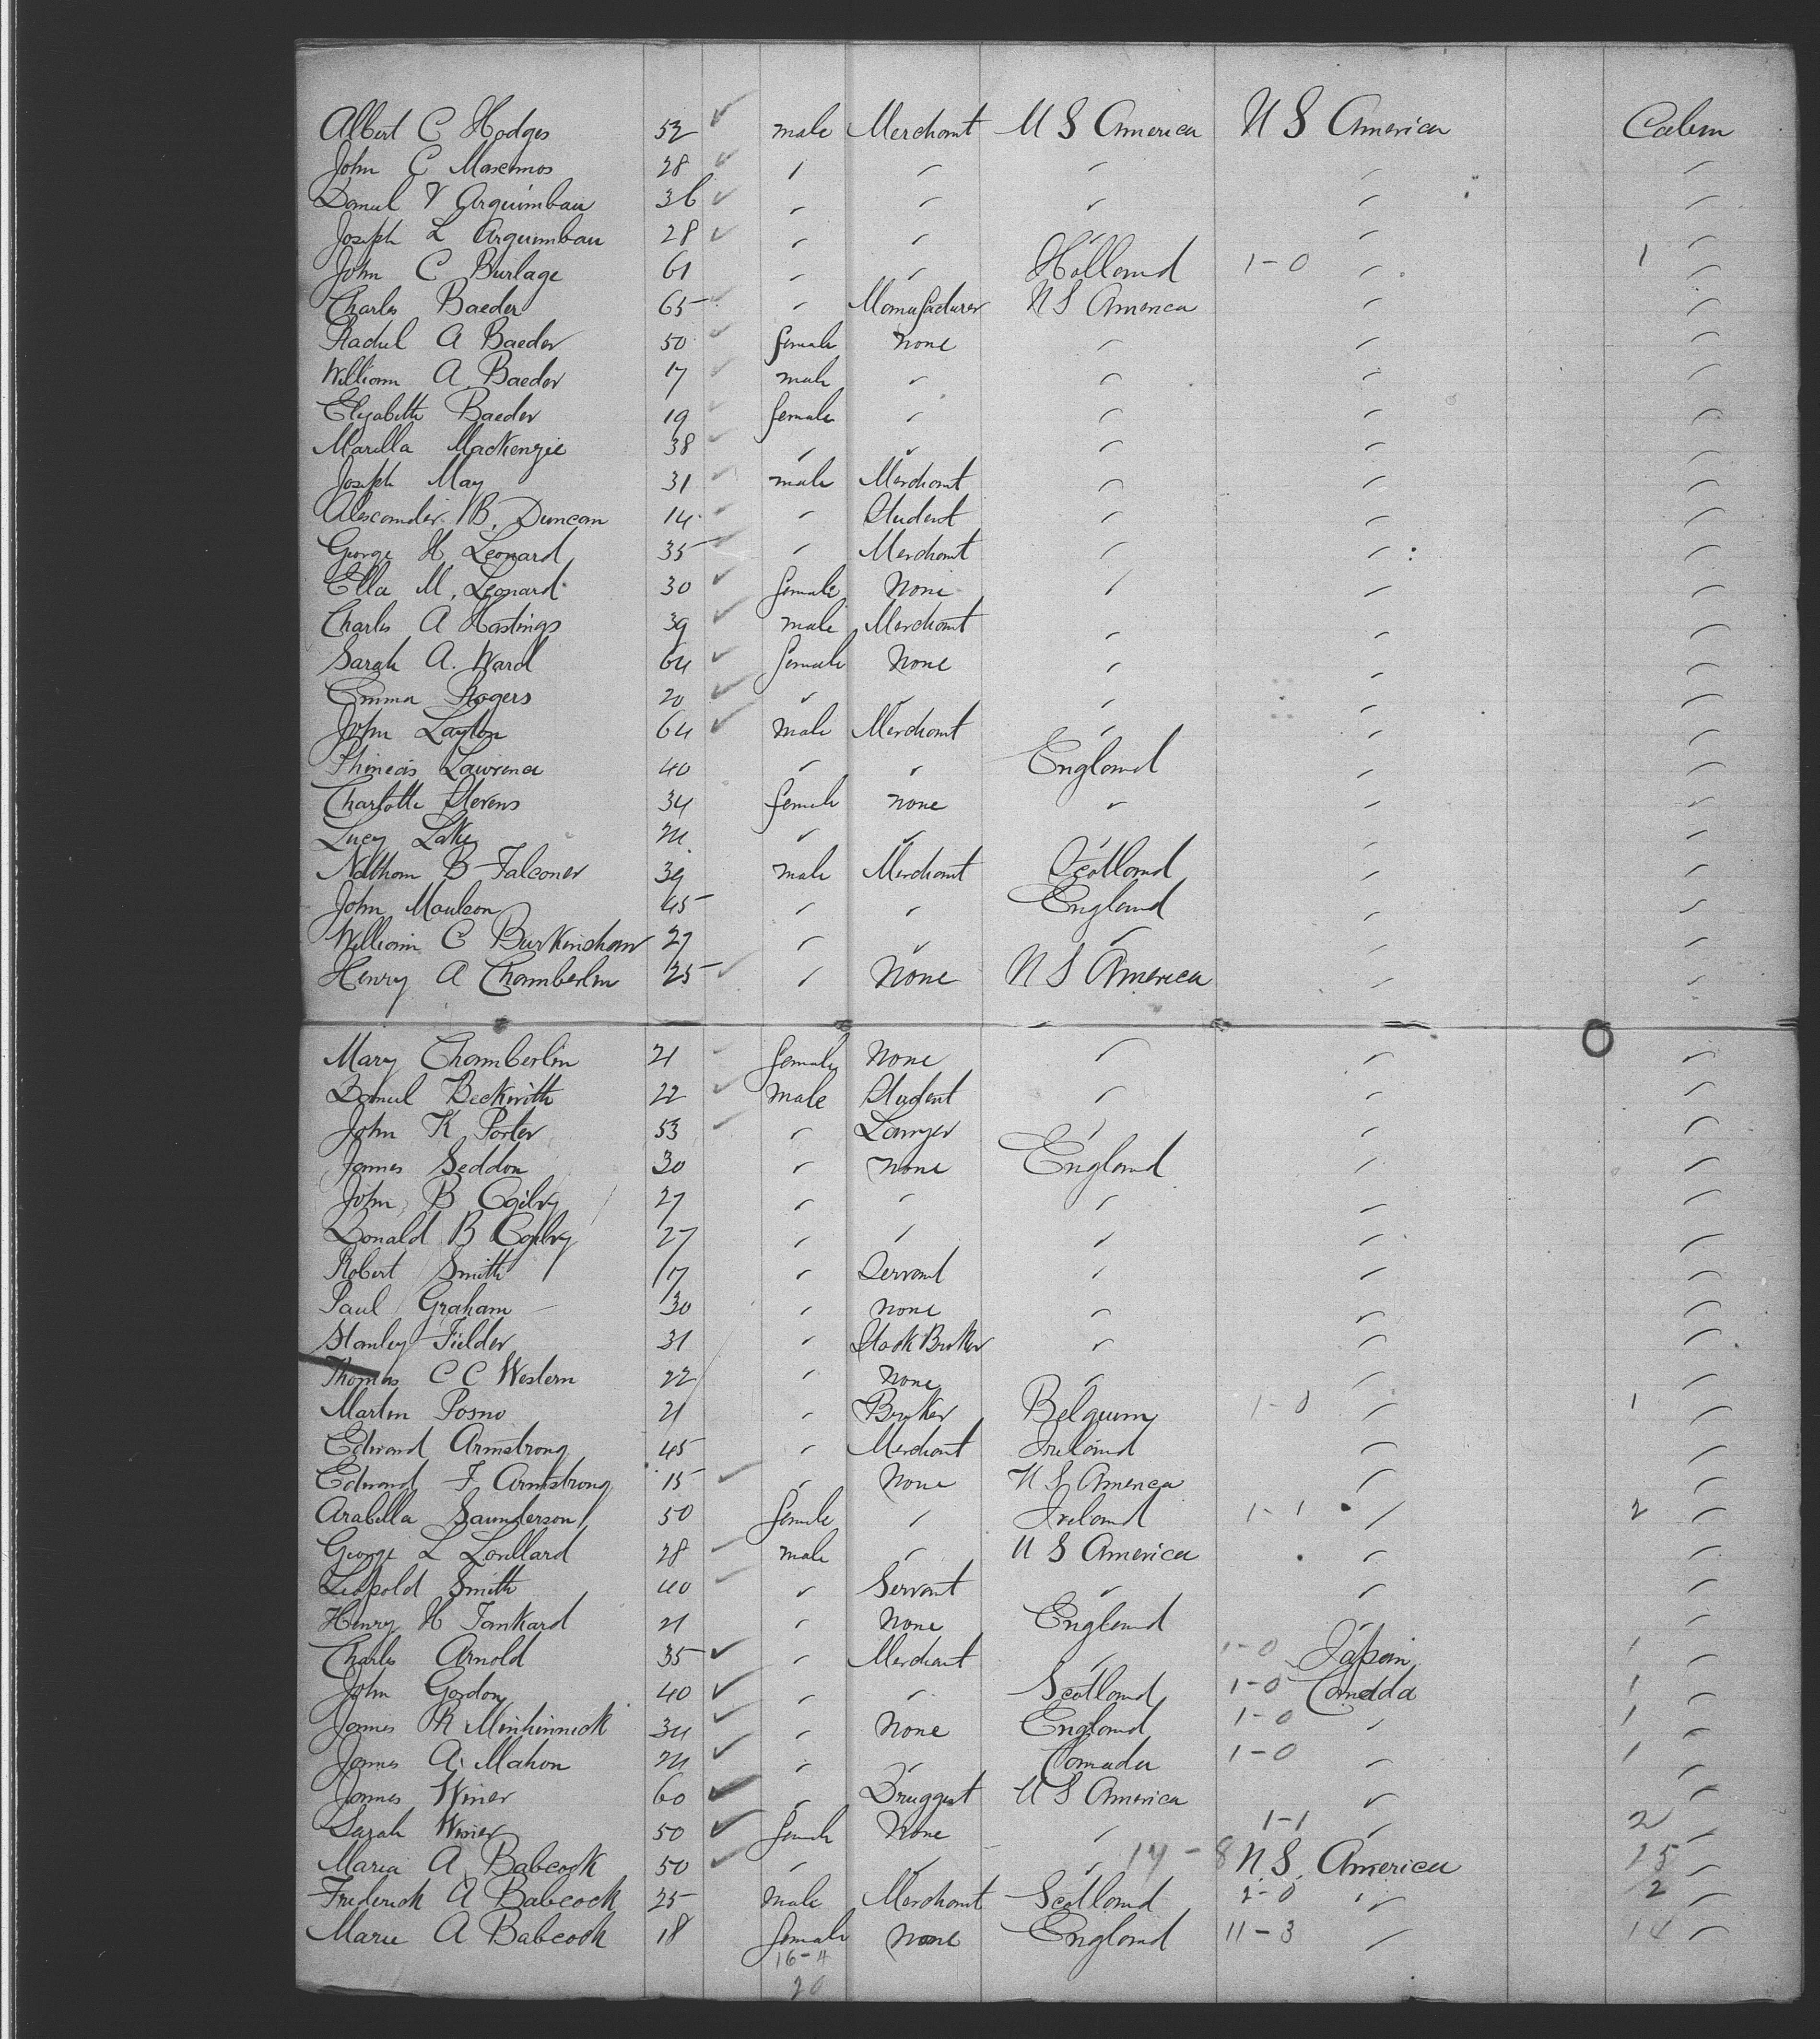 Albert C Hodges 52 ✓ male Merchant U S America U S America Cabin
John C 28 ✓ " " " " "
Daniel V Arguimbau 36 ✓ " " " " "
Joseph L Arguimbau 28 ✓ " " " " "
John C Burlage 61 " " Holland 1-0 " 1 "
Charles Baeder 65 ✓ " Manufacturer U S America " "
Rachel A Baeder 50 ✓ female None " " "
William A Baeder 17 ✓ male " " " "
Elizabeth Baeder 19 ✓ female " " " "
Marilla MacKenzie 38 ✓ " " " " "
Joseph May 31 ✓ male Merchant " " "
Alexander B. Duncan 14 ✓ " Student " " "
George H Leonard 35 ✓ " Merchant " " "
Ella M. Leonard 30 ✓ female None " " "
Charles A Hastings 39 ✓ male Merchant " " "
Sarah A. Ward 64 ✓ female None " " "
Emma Rogers 20 ✓ " " " " "
John Layton 64 ✓ male Merchant " " "
Phineas Lawrence 40 " " England " "
Charlotte Stevens 34 female None " " "
Lucy Lake " " " " "
Nathan B Falconer 39 male Merchant Scotland " "
John Maulson 45 " " England " "
William C Burkinshaw 27 " " " " "
Henry A Chamberlin 25 ✓ " None U S America " "
Mary Chamberlin 21 ✓ female None " " "
Daniel Beckwith 22 ✓ male Student " " "
John K Porter 53 ✓ " Lawyer " " "
James Seddon 30 " None England " "
John B Ogilvy 27 " " " " "
Donald B Ogilvy 27 " " " " "
Robert Smith 17 " Servant " " "
Paul Graham 30 " None " " "
Stanley Fielder 31 " Stock Broker " " "
Thomas C C Western 22 " None " " "
Martin Posno 21 " Broker Belgium 1-0 " 1 "
Edward Armstrong 45 " Merchant Ireland " "
Edward F Armstrong 15 ✓ " None U S America " "
Arabella Saunderson 50 female " Ireland 1-1 " 2 "
George L Lorillard 28 ✓ male " U S America " "
Leopold Smith 40 ✓ " Servant " " "
Henry H Tankard 21 " None England " "
Charles Arnold 35 ✓ " Merchant " 1-0 Japan 1 "
John Gordon 40 ✓ " " Scotland 1-0 Canada 1 "
James Minhinnick 34 ✓ " None England 1-0 " 1 "
James A Mahon ✓ " " Canada 1-0 " 1 "
James Winer 60 ✓ " Druggist U S America " "
Sarah Winer 50 ✓ female None " 1-1 " 2 "
Maria A Babcock 50 ✓ " " " 17-8 U.S. America 25 "
Frederick A Babcock 25 male Merchant Scotland 2-0 " 2 "
Marie A Babcock 18 female None England 11-3 " 14 "
16-4
20